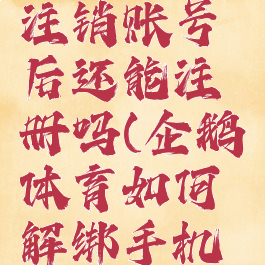 注销账号
后还能注
册吗(企鹅
体育如何
解绑手机